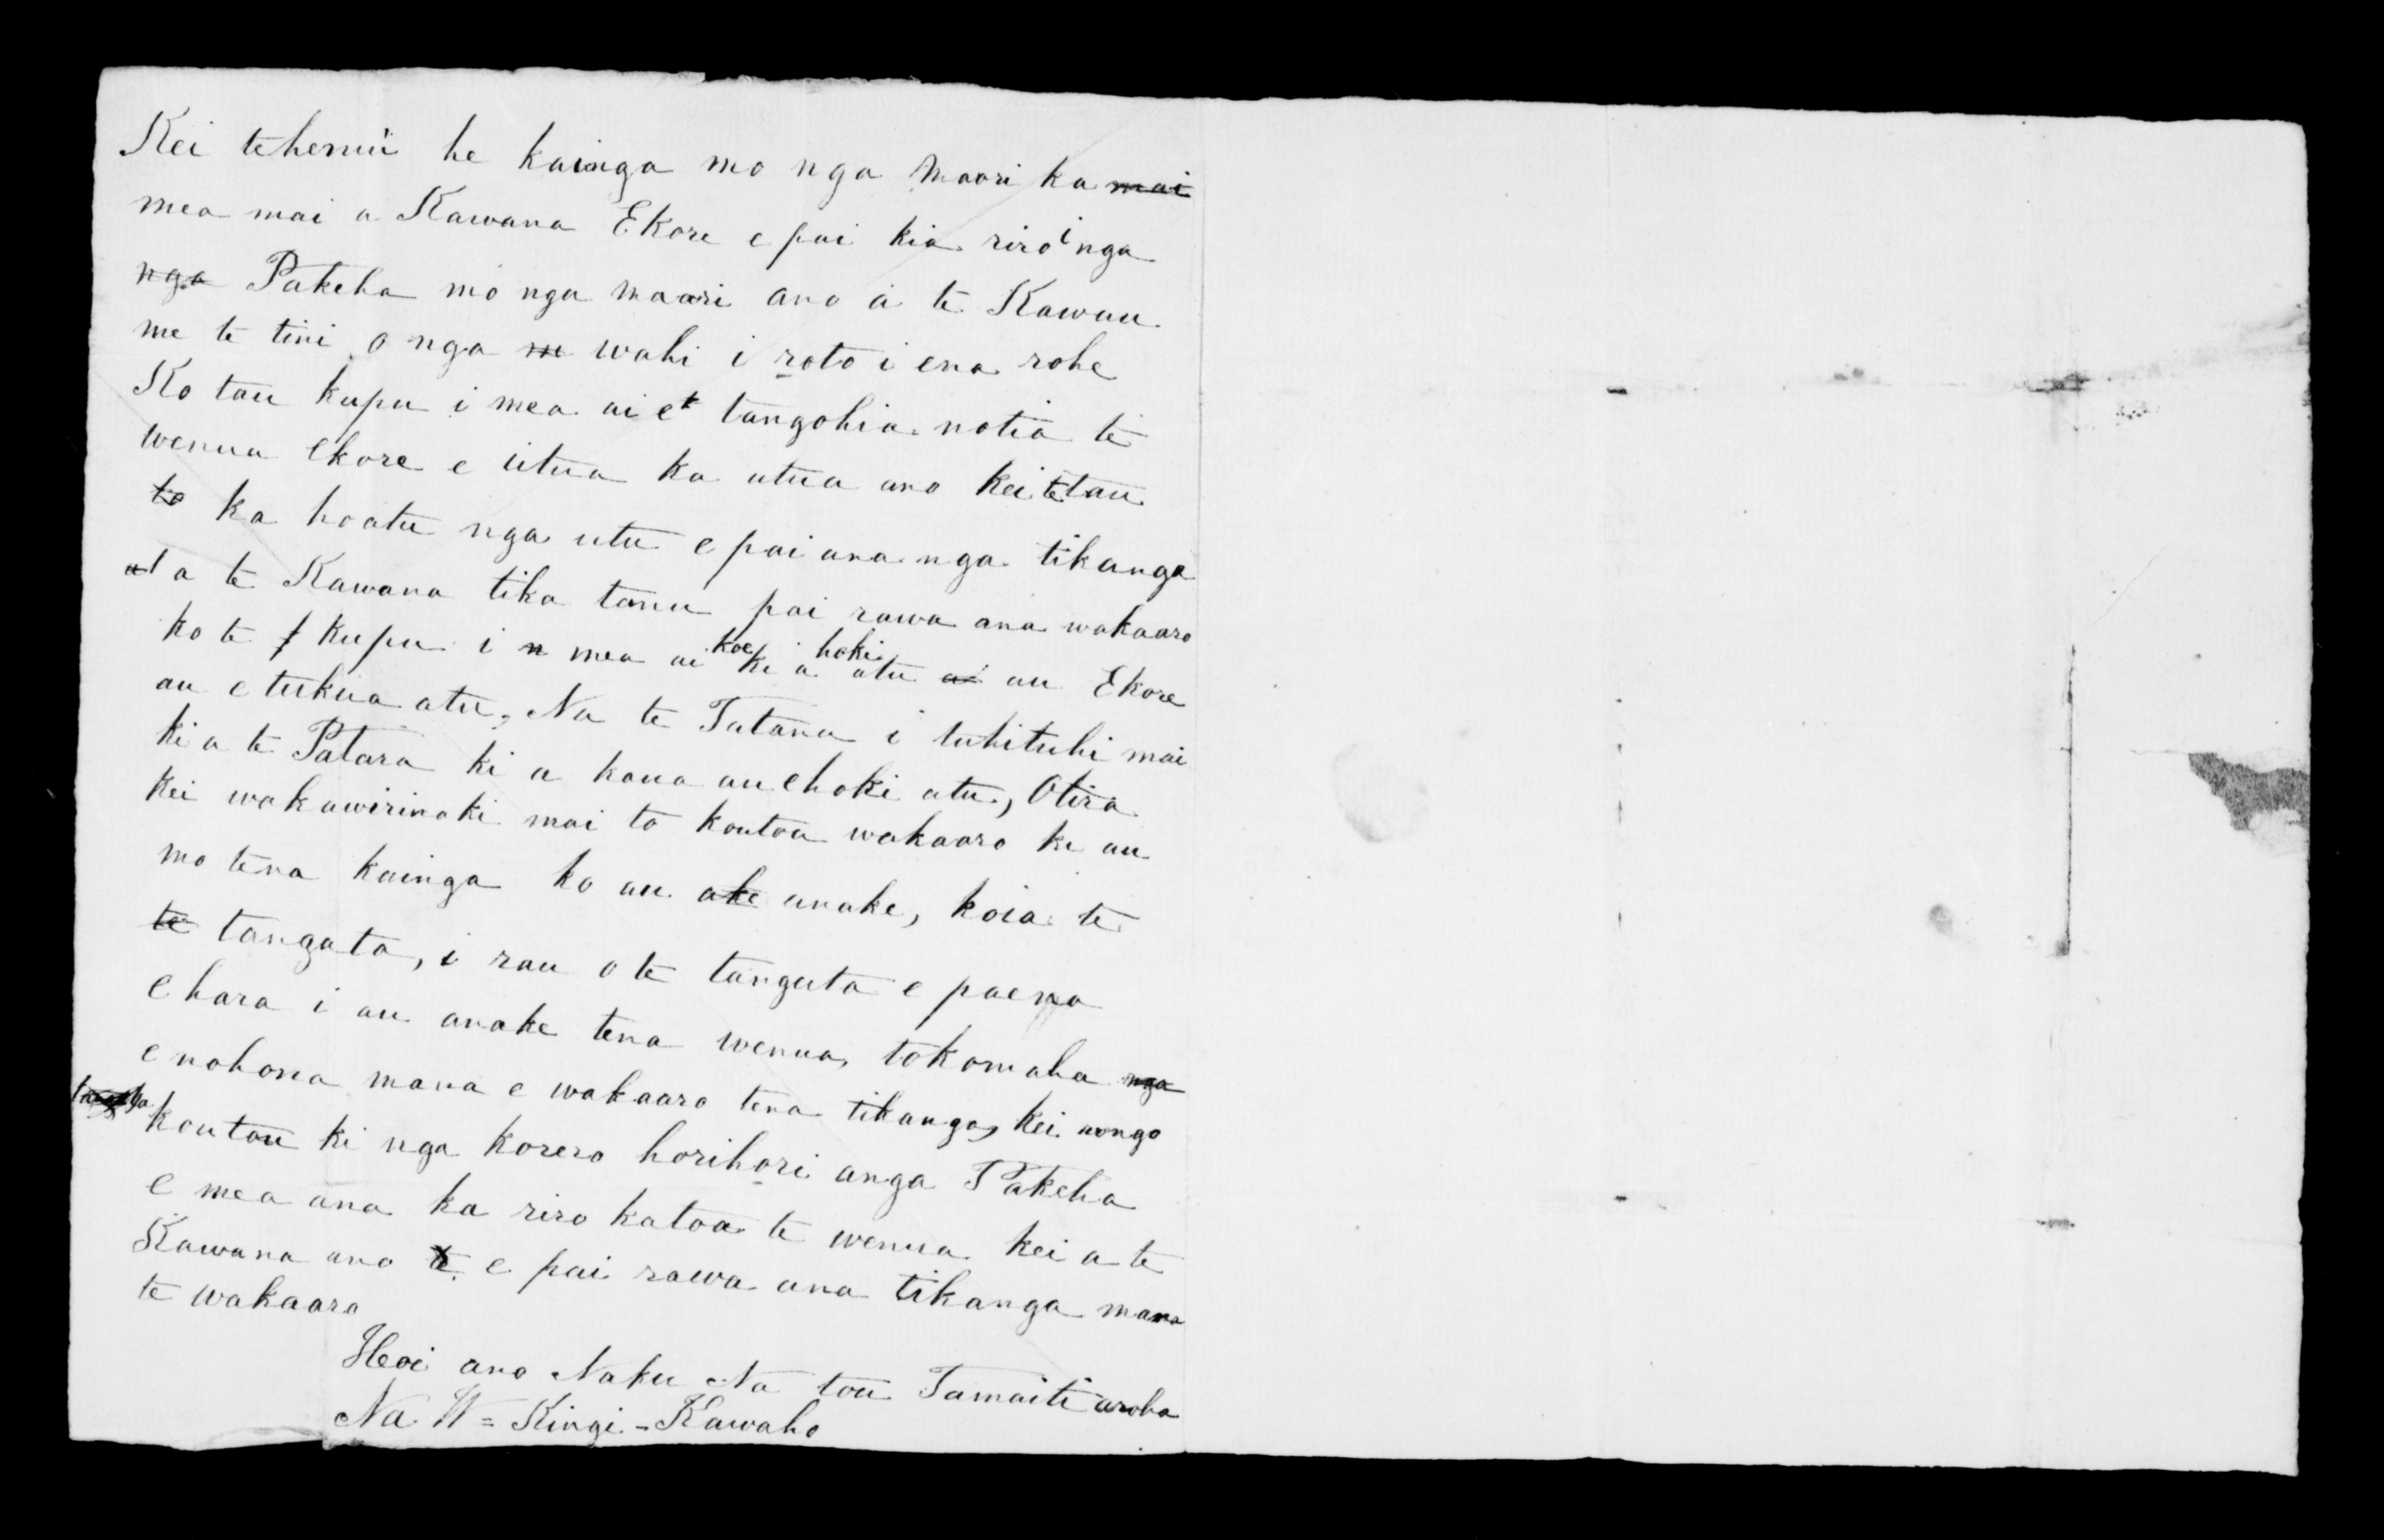 Kei tehemii he kainga mo nga Maori ka mai
mea mai a Kawana Ekore e pai kia riro i nga
nga Pakeha mo nga maori ano a te Kawau
me te tini o nga m wahi i roto i ena rohe
Ko tau kupu i mea ai et tangohia notia te
wenua ekore e utua ka utua ano kei te tau
to ka hoatu nga utu e pai ana nga tikanga
a te Kawana tika tonu pai rawa ana wakaaro
ko te kupu i n mea ai koe ki a hoki atu ai au Ekore
au e tukua atu, Na te Tatana i tuhituhi mai
ki a te Patara ki a kaua au e hoki atu, Otira
kei wakawirinaki mai to koutou wakaaro ki au
mo tena kainga ko au ake anake, koia te
te tangata, i rau o te tangata e paena
e hara i au anake tena wenua, tokomaha nga
e nohona mana e wakaaro tena tikanga, kei rongo
koutou ki nga korero horihori anga Pakeha
e mea ana ka riro katoa te wenua kei a te
Kawana ano e pai rawa ana tikanga mana
te wakaaro
Heoi ano Naku Na tou Tamaiti aroha
Na W = Kingi - Kawaho